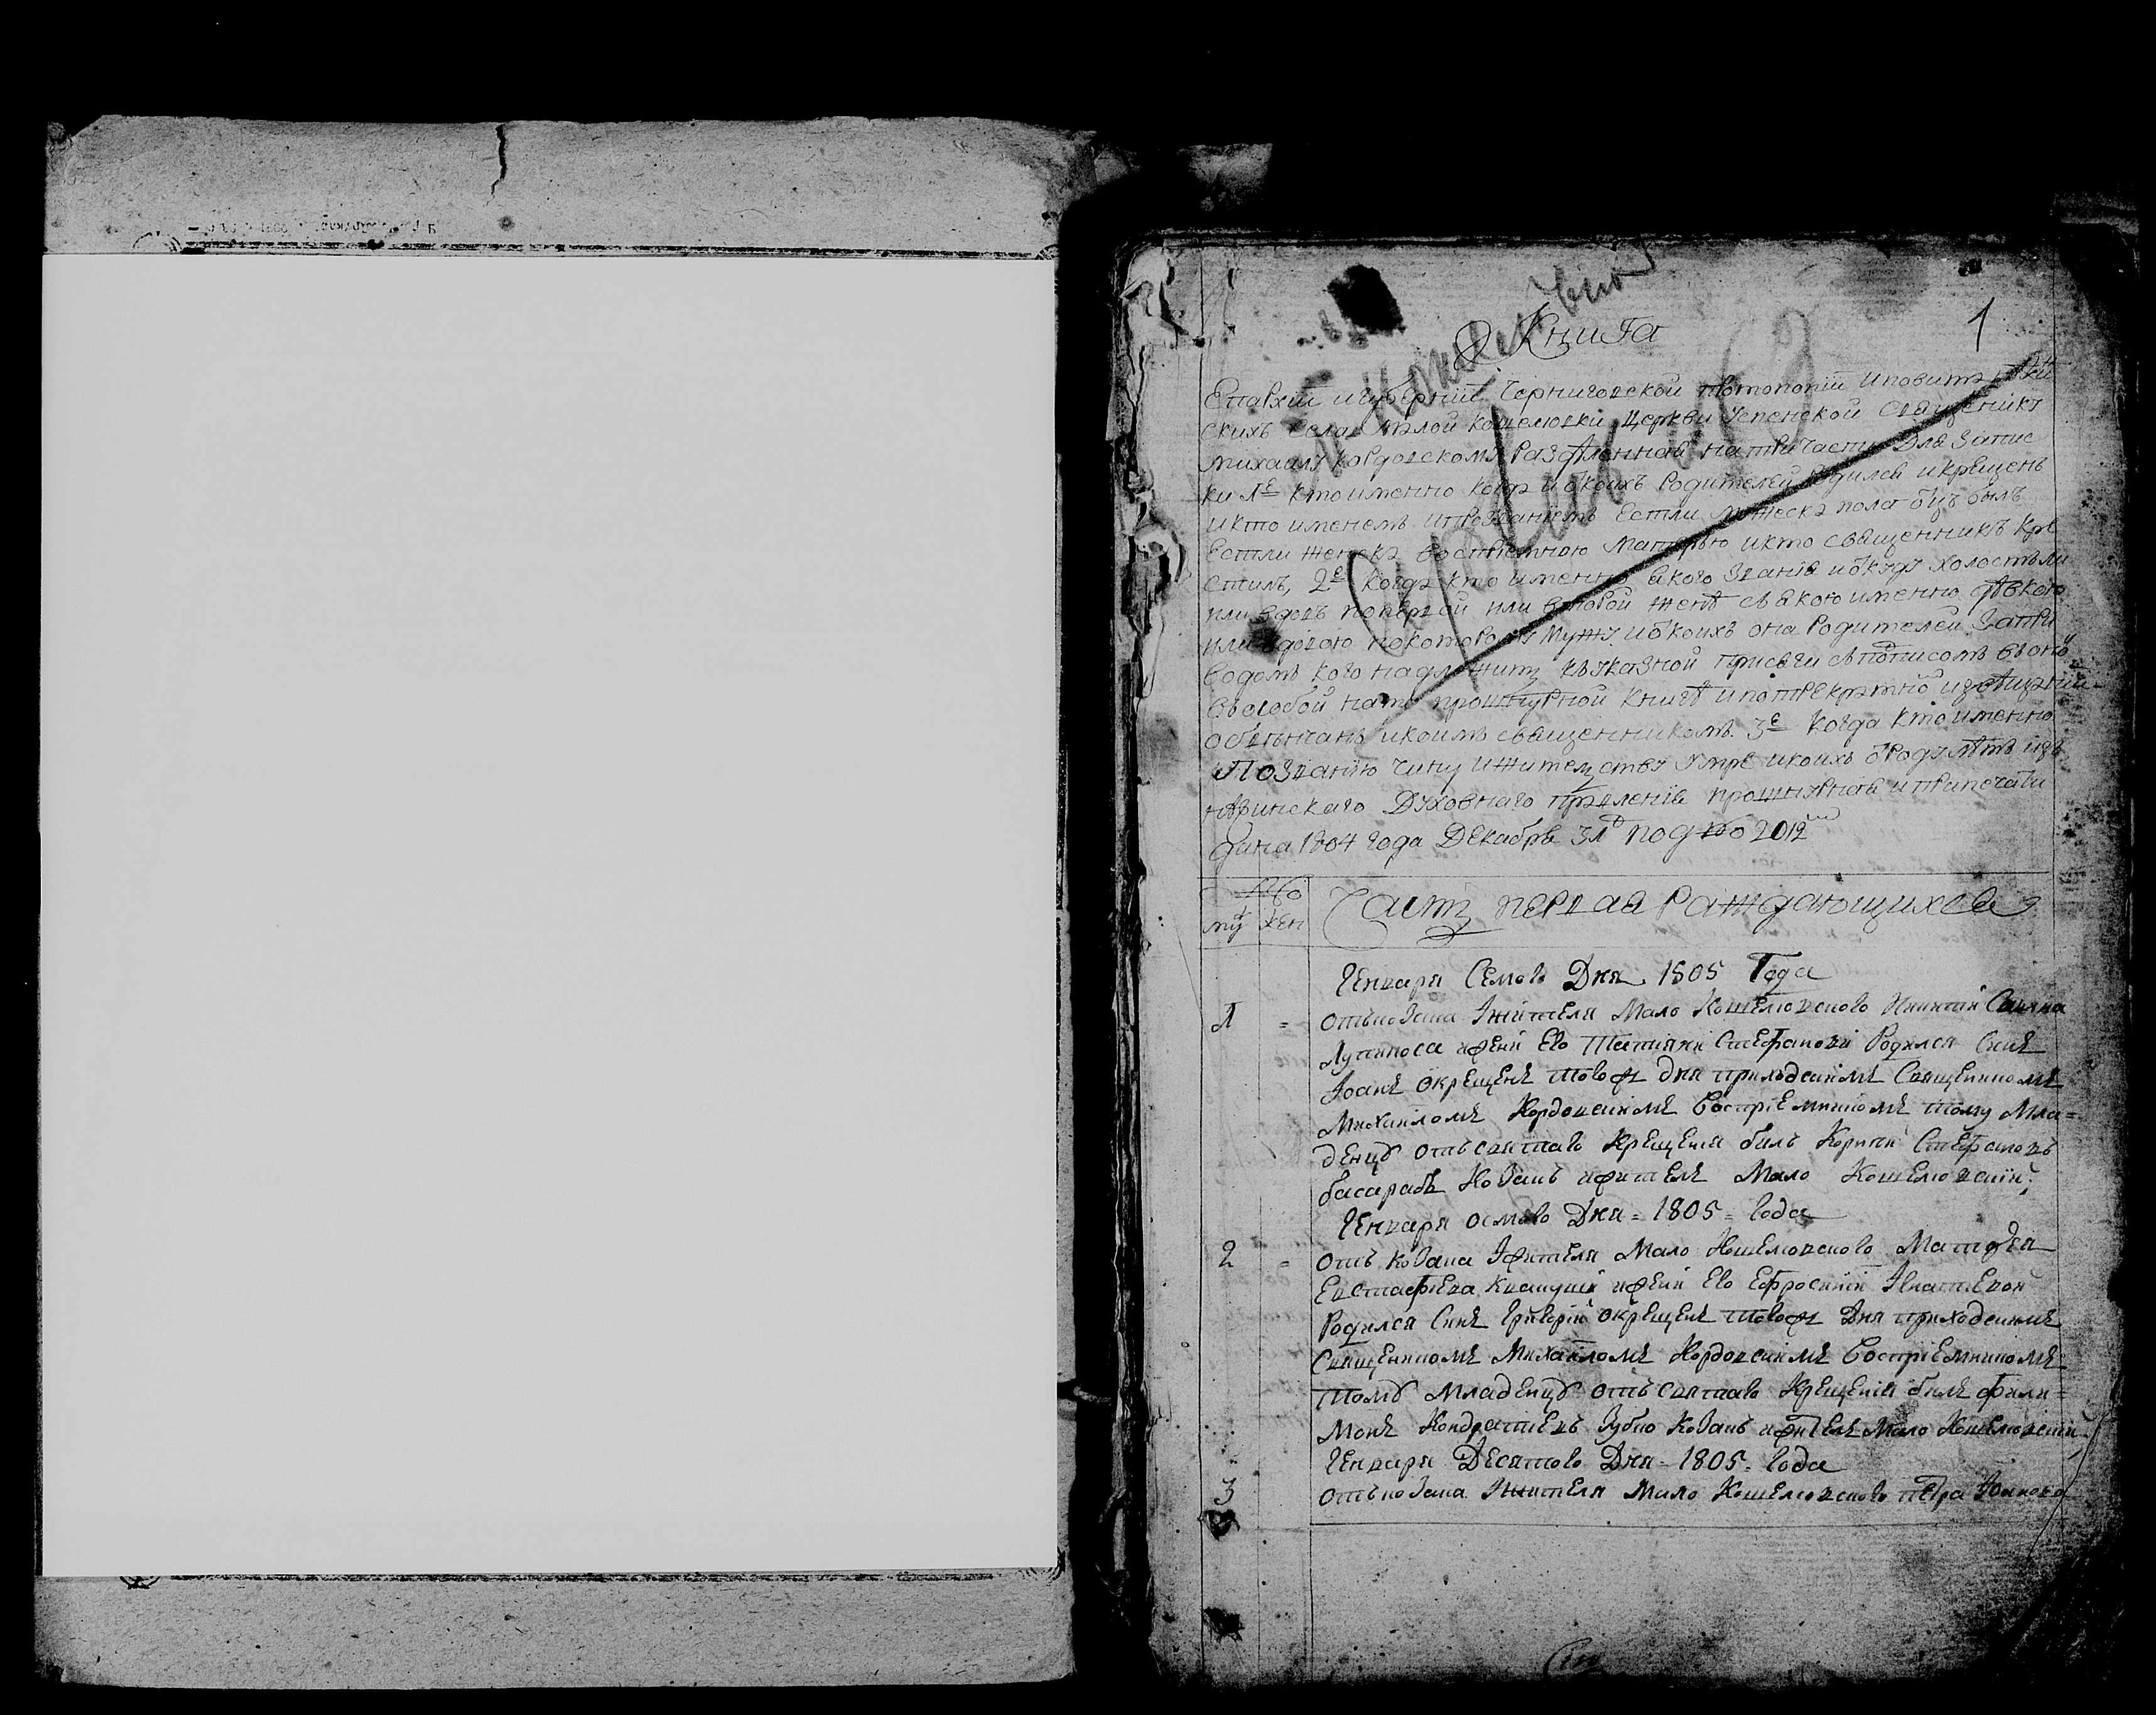 1
Книга
Епархіи и губерніи Черниговской протопопіи и повита
скихъ села Малой Кошелювки Церкви Успенской священику
Михаилу Кордовскому раздѣленная на три части для запис
ки 1е кто именно когда и ѿ коихъ родителей родился и крещенъ
и кто именемъ и прозваніемъ естли мужеска пола ѿцъ былъ
естли женска воспріемною матерью и кто священникъ кре
стилъ, 2е когда кто именно якого званія и ѿкуду холостъ ли
или вдовъ по первой или второй женѣ съ якою именно дѣвкою
или вдовою по которому мужу и ѿ коихъ она родителей
водомъ кого надлежитъ къ указной присяги съ подписомъ
въ особой на то прошнурной книгѣ и по трекратно
обвѣнчанъ и коимъ священникомъ. 3е когда кто именно
По званію чину и жителству умре и коихъ ѿроду лѣтъ изъ
нѣжинскаго Духовнаго правленія прошнурная и припечата
дана 1804 года Декабря 31 под №о 2012
му жен Часть первая раждающихся
Генваря Семого Дня 1805 Года
1 = Отъ козака Жителя Мало Кошелювского
жени Его Татіяни Стефанови Родился Синъ
Іоанъ окрещенъ того ж дня приходскимъ Священникомъ
Михаиломъ Кордовскимъ Воспріемникомъ тому Мла=
денцу отъ святаго Крещенія билъ Стефановъ
басарабъ Козакъ житель Мало Кошелювскій;
Генваря осмого Дня = 1805 = Года
2 = Отъ козака Жителя Мало Кошелювского Матфея
Евстафіева жени Его Ефросиніи
Родился Синъ Григорій окрещенъ того ж Дня приходскимъ
Священникомъ Михаиломъ Кордовскимъ Воспріемникомъ
Тому Младенцу отъ святаго Крещенія билъ Фили=
монъ Кондратіевъ Зубко Козакъ житель Мало Кошелювскій
Генваря Десятого Дня - 1805 - Года
3 Отъ козака Жителя Мало Кошелювского Петра